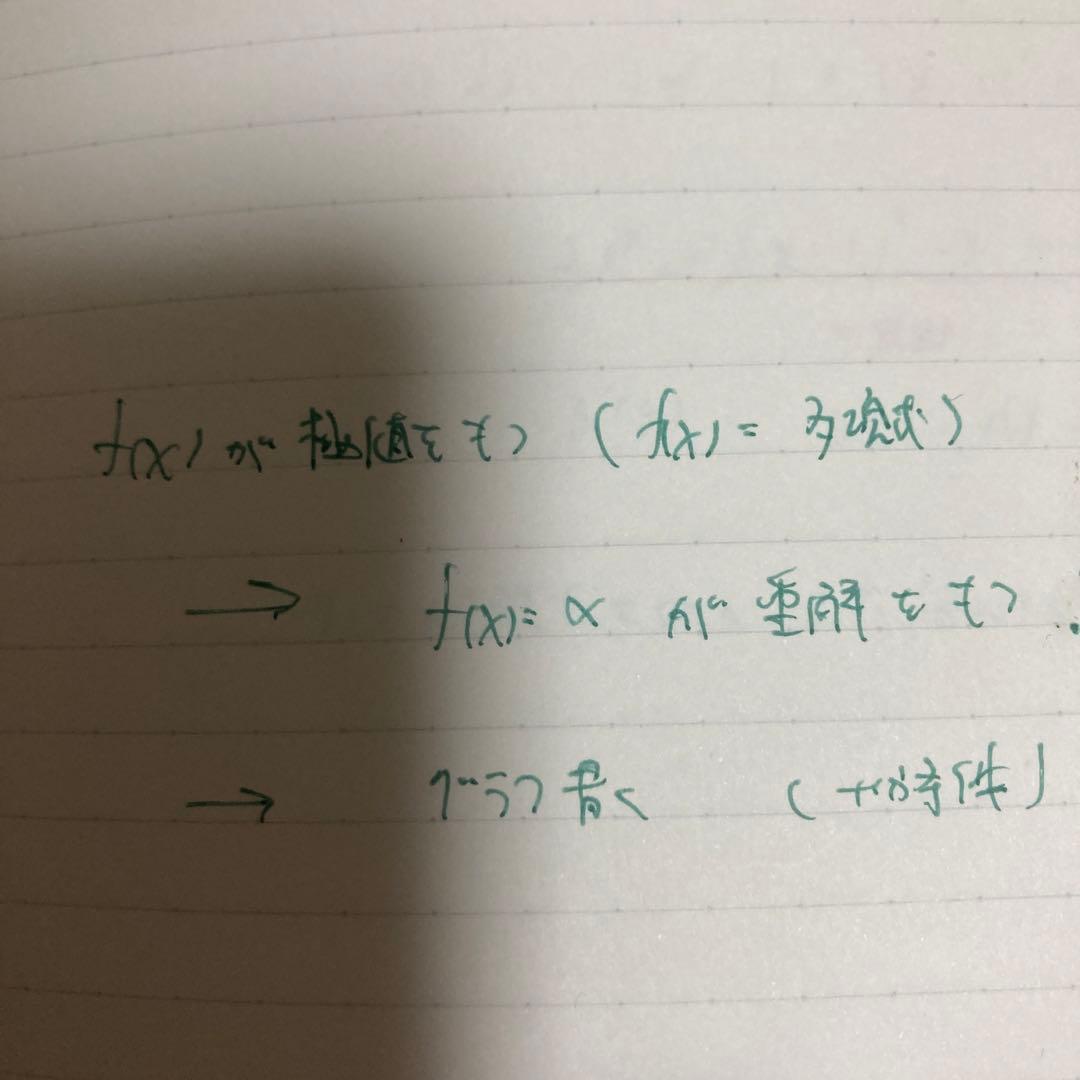 f(x) が 極値をもつ (f(x) = 多項式)
→ f(x) = α が 重解をもつ
→ グラフ書く (十分条件)